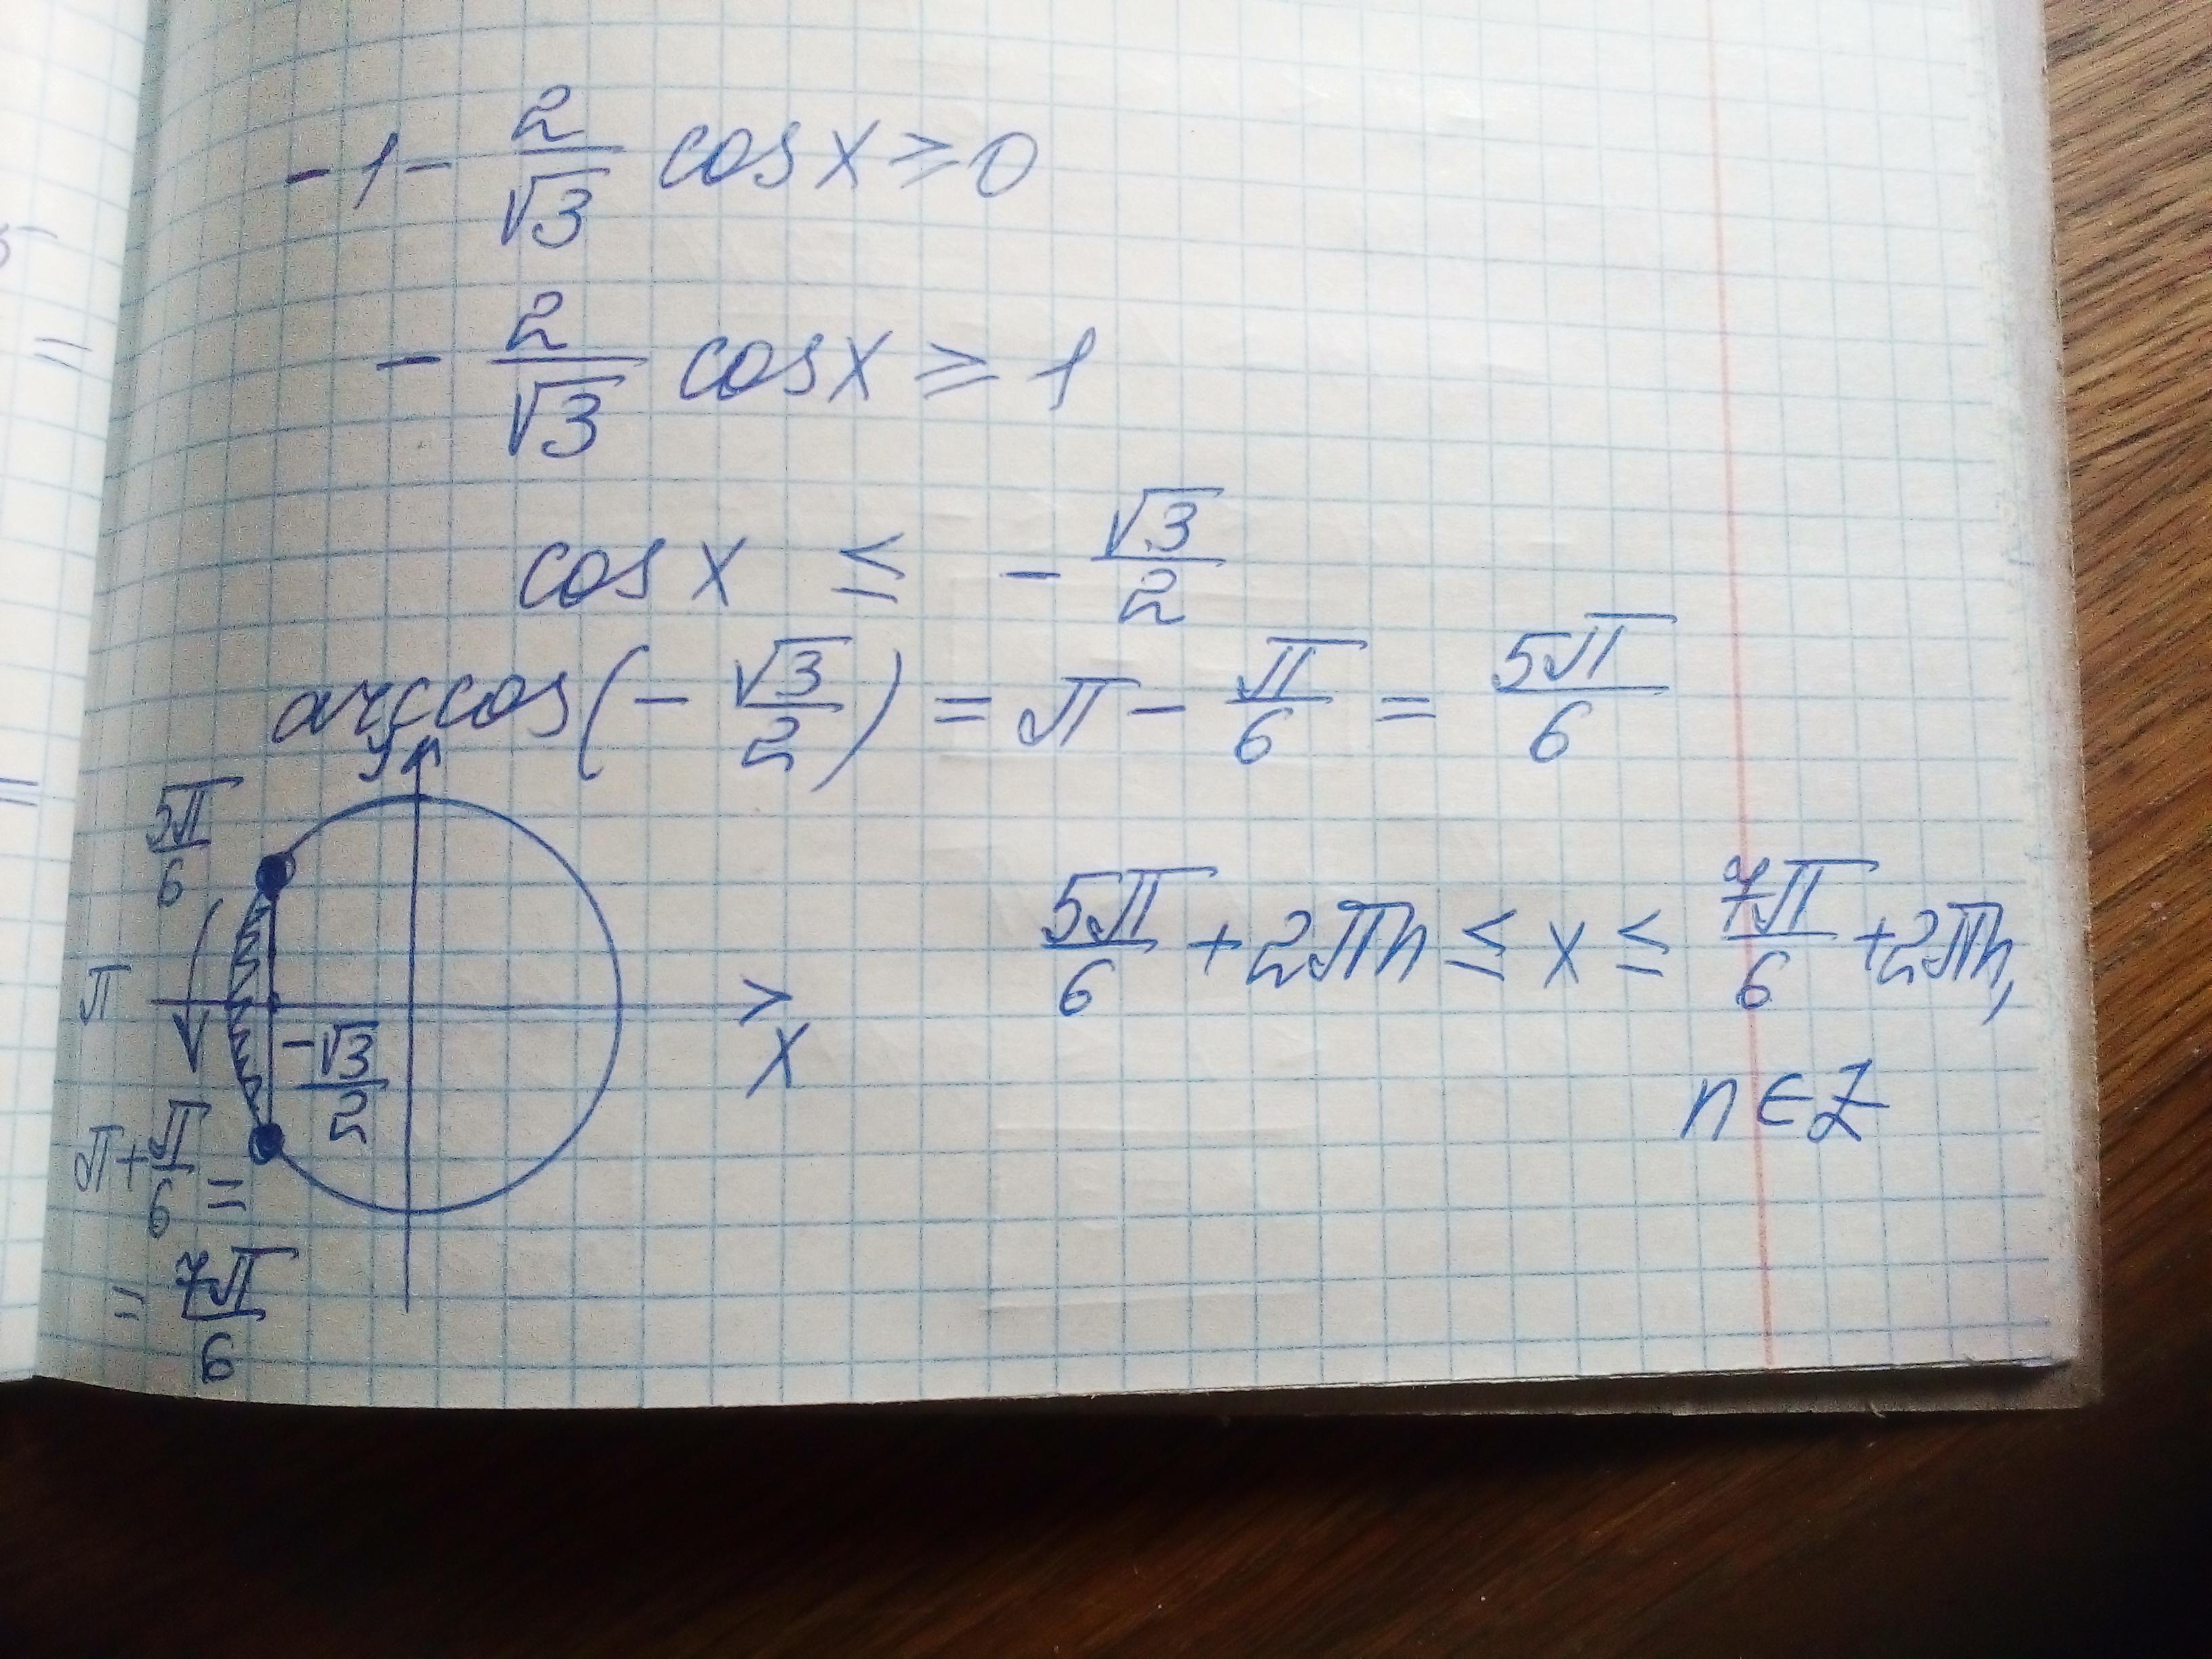 -1 - 2/√3 cos x ≥ 0
- 2/√3 cos x ≥ 1
cos x ≤ - √3/2
arccos(- √3/2) = π - π/6 = 5π/6
y
5π/6
π
-√3/2
x
π + π/6 =
= 7π/6
5π/6 + 2πn ≤ x ≤ 7π/6 + 2πn,
n ∈ Z